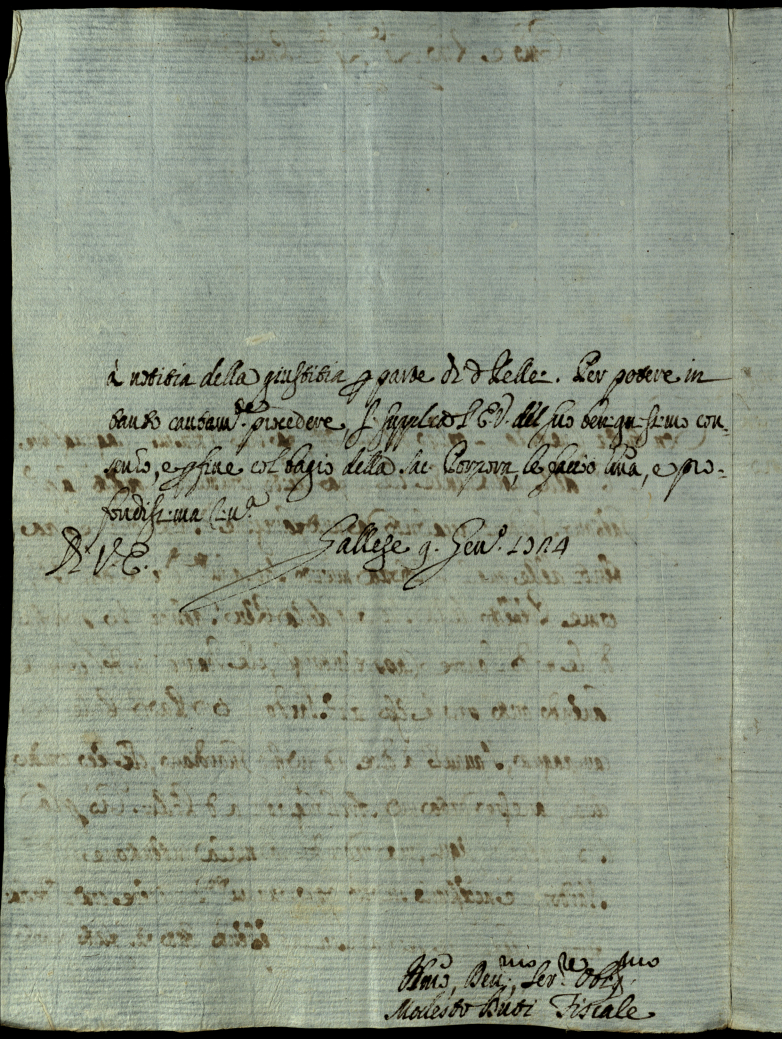 à notitia della giustitia ꝑ parte di d Pelle. Per potere in
tanto cautam.te procedere, si supplica l'E.V. del suo benignissimo con-
senso, e ꝑ fine col bagio della sac: Porpora, le faccio um̃a, e pro-
fondissima
Di V.E. Gallese 9. Gen.o 1704
Um̃o, Deu.mo, ser.re Obl.mo
Modesto Buti Fiscale